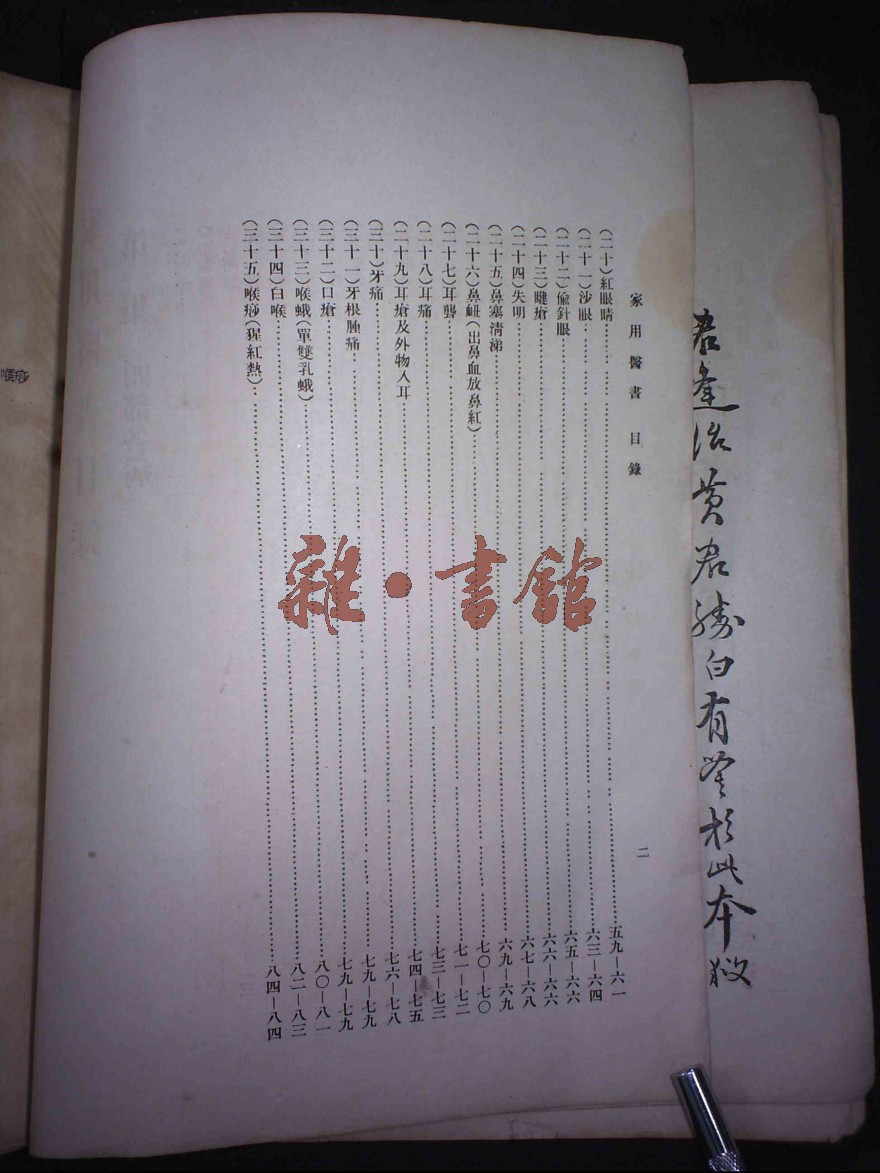 家用醫書 目錄 二
(二十)紅眼睛……五九—六一
(二十一)沙眼……六三—六四
(二十二)偸針眼……六五—六六
(二十三)睷瘡……六六—六六
(二十四)失明……六七—六八
(二十五)鼻塞淸涕……六九—六九
(二十六)鼻衄(出鼻血放鼻紅)……七〇—七〇
(二十七)耳聾……七一—七二
(二十八)耳痛……七三—七三
(二十九)耳瘡及外物入耳……七四—七五
(三十)牙痛……七六—七八
(三十一)牙根腫痛……七九—七九
(三十二)口瘡……七九—七九
(三十三)喉蛾(單雙乳蛾)……八〇—八一
(三十四)白喉……八二—八三
(三十五)喉痧(猩紅熱)……八四—八四
雜·書館
喉痧